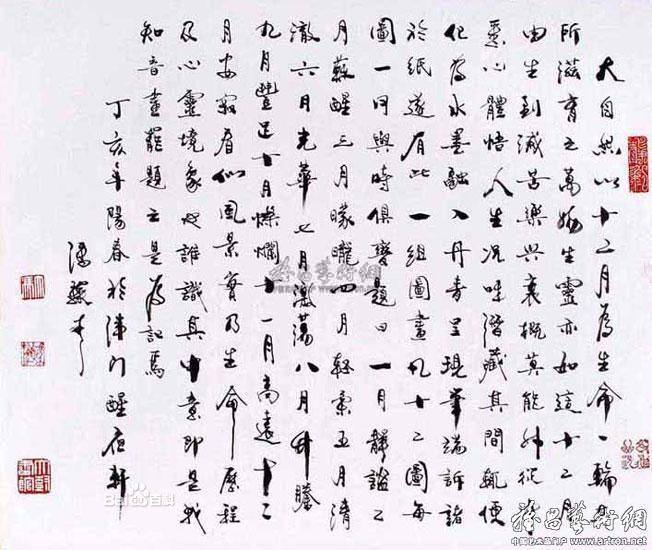 大自然以十二月為生命一輪其
所滋育之萬物生靈亦如這十二月
由生到滅苦樂興衰概莫能外從
心體悟人生況味潛藏其間輒便
化為水墨融入丹青呈現筆端訴諸
於紙遂有此一組圖畫凡十二圖每
圖一月與時俱變題曰一月靜謐二
月蘇醒三月曚曨四月輕柔五月清
澈六月光華七月激蕩八月升騰
九月豐足十月燦爛十一月高遠十二
月安寂看似風景實乃生命歷程
及心靈境象也誰識其中意即是我
知音畫罷題之是為記焉
丁亥年陽春於津門醒夜軒
馮驥才
雅昌藝術網
Bai百科
雅昌藝術網
中国艺术品门户 www.artron.net